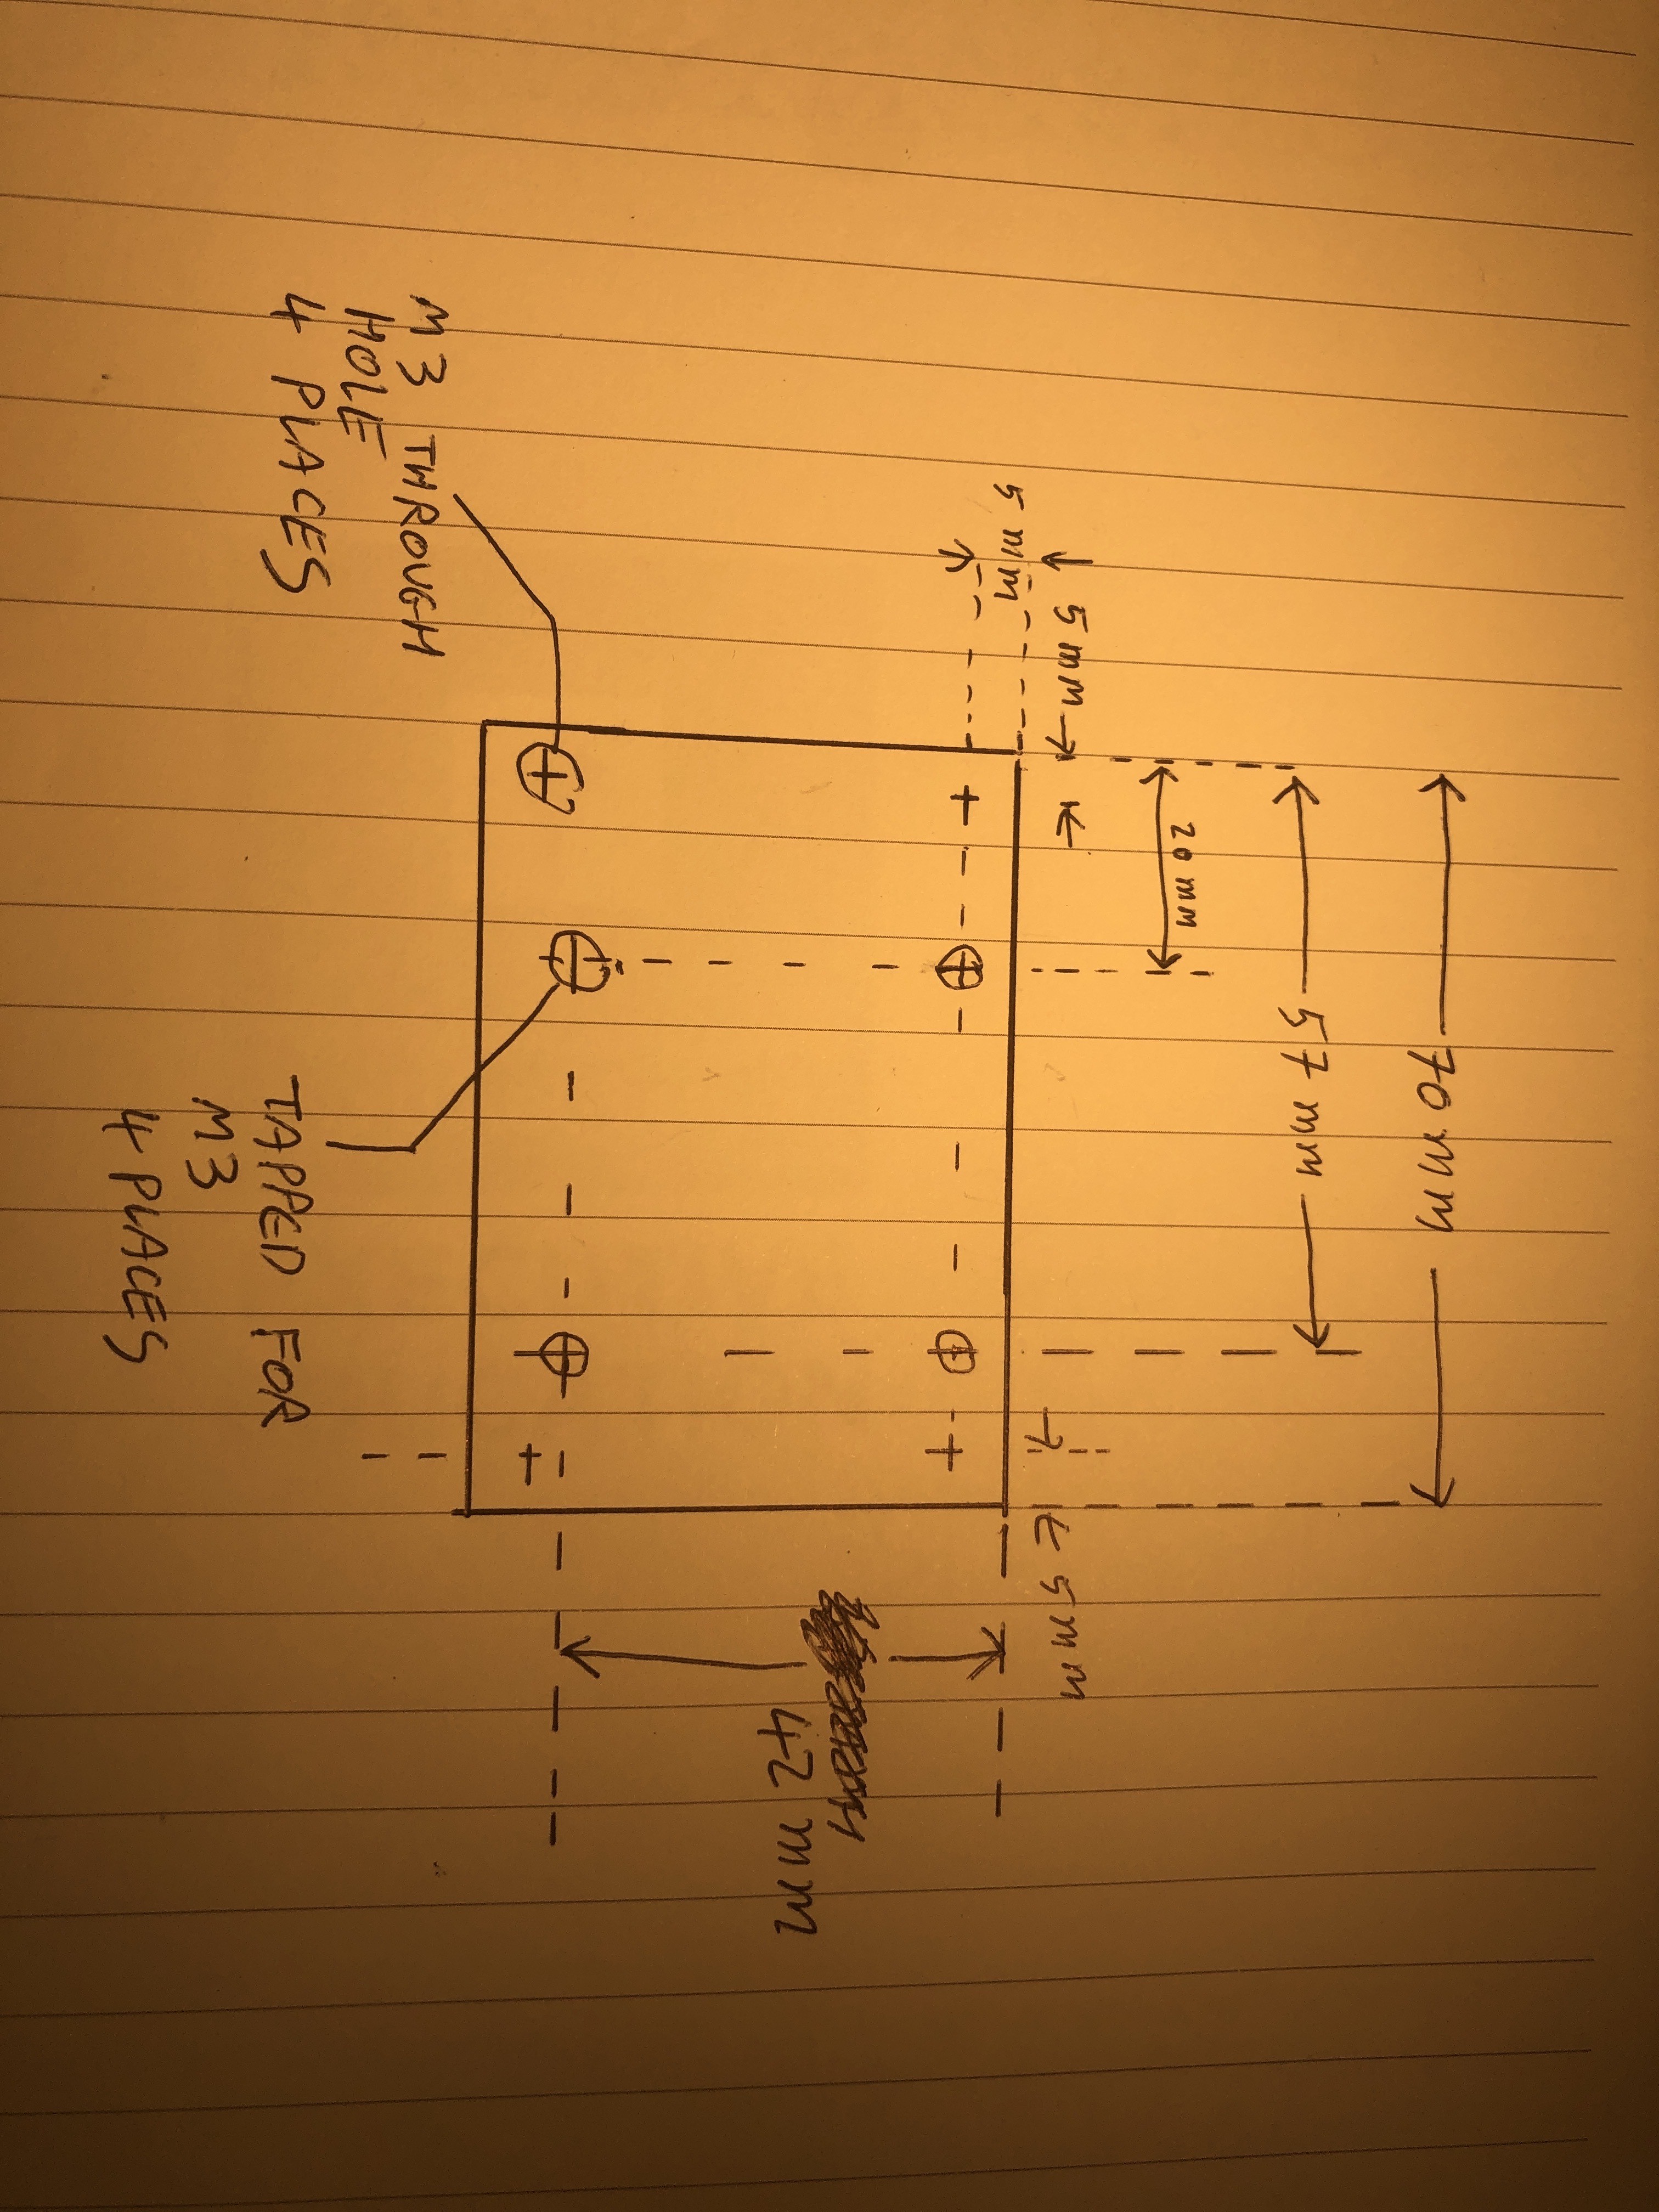 70 mm
57 mm
20 mm
5 mm
5 mm
5 mm
42 mm
M3 THROUGH
HOLE
4 PLACES
TAPPED FOR
M3
4 PLACES